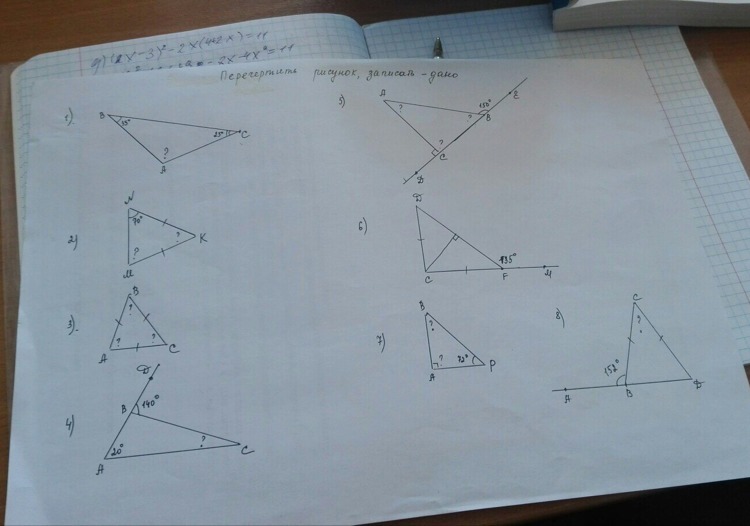 Перечертить рисунок, записать - дано
1) B 35° 25° C A ?
2) N 70° K ? M ?
3). B ? A ? C ?
4) D B 140° A 20° ? C
5) A ? 150° E ? B ? C D
6) D C F 135° M
7) B ? A ? 72° P
8) C ? 152° A B D